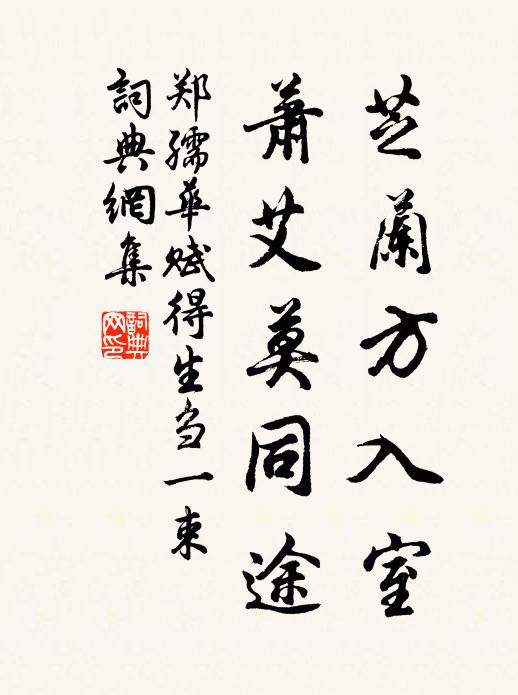 芝蘭方入室
蕭艾莫同途
郑孺華赋得生刍一束
詞典網集
詞典网印